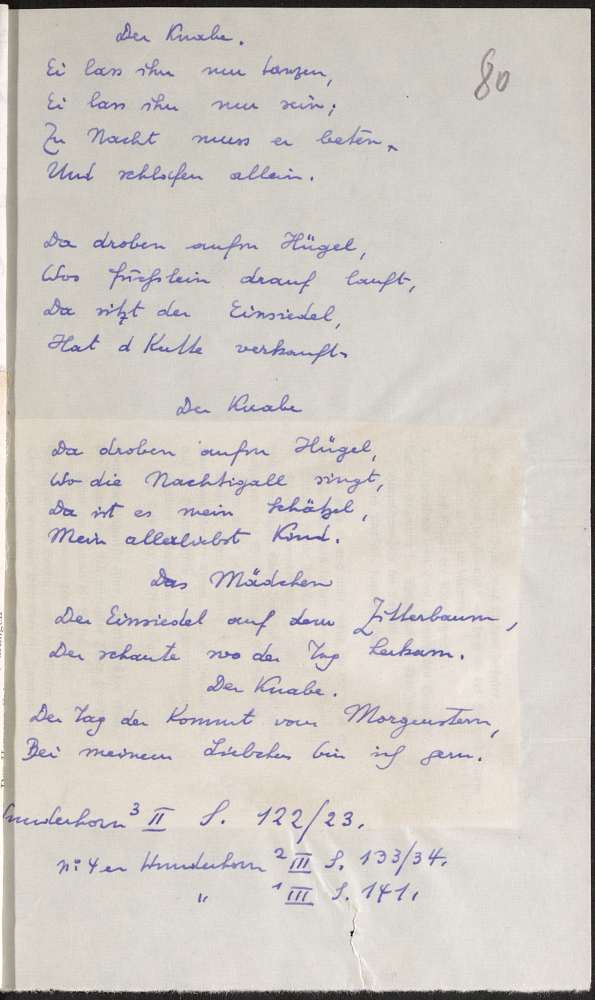 Der Knabe.
80
Ei lass ihn nur tanzen,
Ei lass ihn nur sein;
Zu Nacht muss er beten,
Und schlafen allein.
Da droben aufm Hügel,
Wos füchslein drauf lauft,
Da sitzt der Einsiedel,
Hat d Kutte verkauft.
Der Knabe
Da droben aufm Hügel,
Wo die Nachtigall singt,
Da ist es mein Schätzel,
Mein allerliebst Kind.
Das Mädchen
Der Einsiedel auf dem Zitterbaum,
Der schaute wo der Tag herkam.
Der Knabe.
Der Tag der kommt vom Morgenstern,
Bei meinem Liebchen bin ich gern.
Wunderhorn³ II S. 122/23.
Wunderhorn ² III S. 133/34.
" ¹ III S. 141.